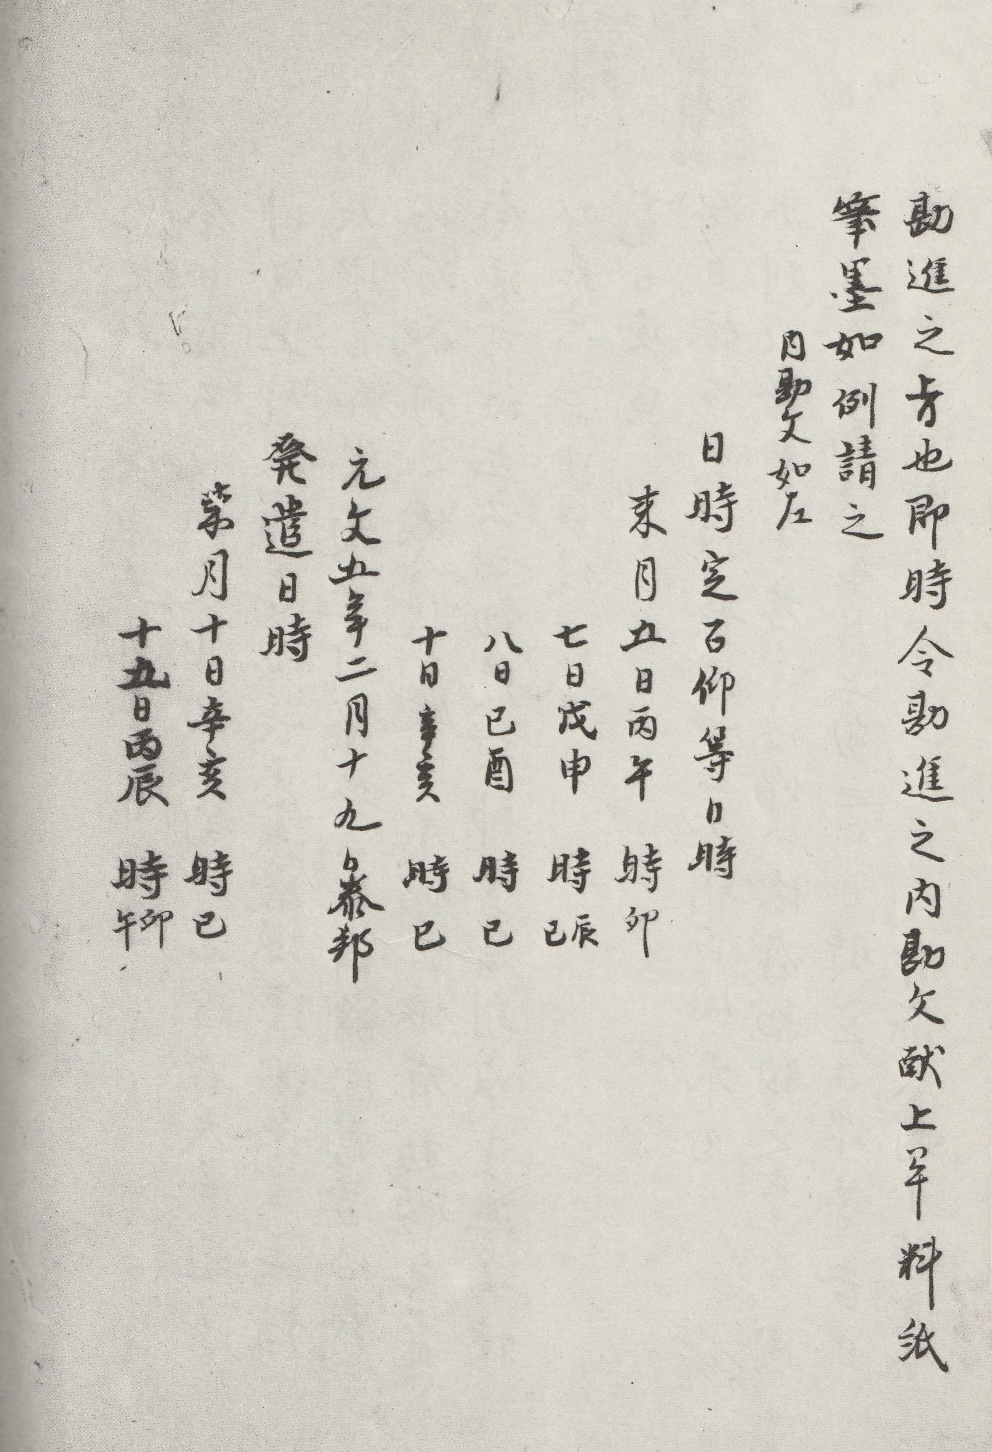 勘進之旨也即時令勘進之内勘文献上畢料紙
筆墨如例請之
内勘文如左
日時定召仰等日時
来月五日丙午 時卯
七日戊申 時辰巳
八日己酉 時巳
十日辛亥 時巳
元文五年二月十九日泰邦
発遣日時
来月十日辛亥 時巳
十五日丙辰 時卯午